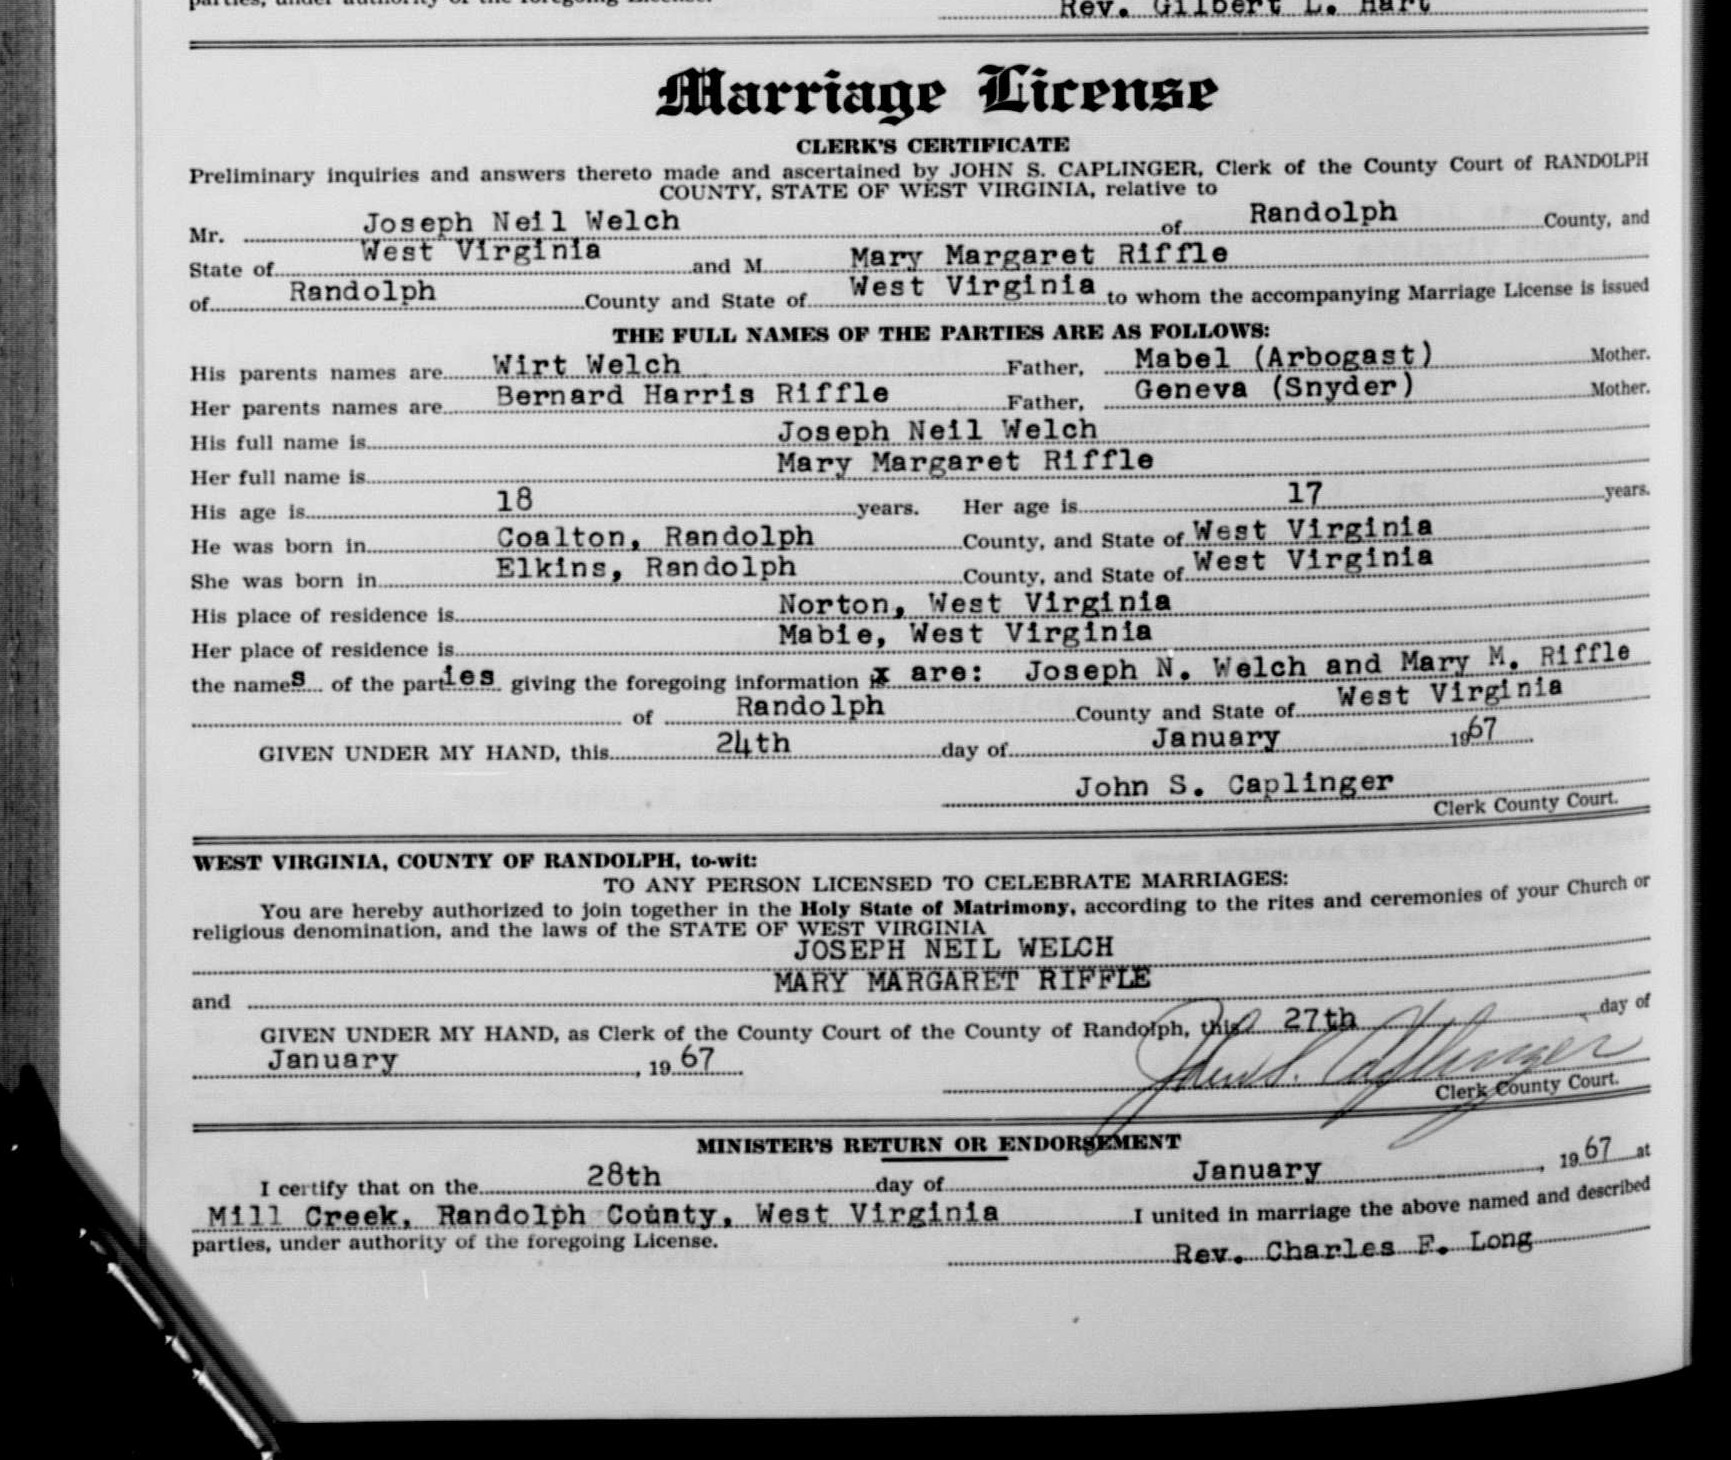 parties, under authority of the foregoing License.
Rev. Gilbert L. Hart
Marriage License
CLERK'S CERTIFICATE
Preliminary inquiries and answers thereto made and ascertained by JOHN S. CAPLINGER, Clerk of the County Court of RANDOLPH
COUNTY, STATE OF WEST VIRGINIA, relative to
Mr. Joseph Neil Welch of Randolph County, and
State of West Virginia and M Mary Margaret Riffle
of Randolph County and State of West Virginia to whom the accompanying Marriage License is issued
THE FULL NAMES OF THE PARTIES ARE AS FOLLOWS:
His parents names are Wirt Welch Father, Mabel (Arbogast) Mother.
Her parents names are Bernard Harris Riffle Father, Geneva (Snyder) Mother.
His full name is Joseph Neil Welch
Her full name is Mary Margaret Riffle
His age is 18 years. Her age is 17 years.
He was born in Coalton, Randolph County, and State of West Virginia
She was born in Elkins, Randolph County, and State of West Virginia
His place of residence is Norton, West Virginia
Her place of residence is Mabie, West Virginia
the names of the parties giving the foregoing information are: Joseph N. Welch and Mary M. Riffle
of Randolph County and State of West Virginia
GIVEN UNDER MY HAND, this 24th day of January 1967
John S. Caplinger
Clerk County Court.
WEST VIRGINIA, COUNTY OF RANDOLPH, to-wit:
TO ANY PERSON LICENSED TO CELEBRATE MARRIAGES:
You are hereby authorized to join together in the Holy State of Matrimony, according to the rites and ceremonies of your Church or
religious denomination, and the laws of the STATE OF WEST VIRGINIA
JOSEPH NEIL WELCH
and MARY MARGARET RIFFLE
GIVEN UNDER MY HAND, as Clerk of the County Court of the County of Randolph, this 27th day of
January, 1967
John S. Caplinger
Clerk County Court.
MINISTER'S RETURN OR ENDORSEMENT
I certify that on the 28th day of January, 1967 at
Mill Creek, Randolph County, West Virginia I united in marriage the above named and described
parties, under authority of the foregoing License.
Rev. Charles F. Long